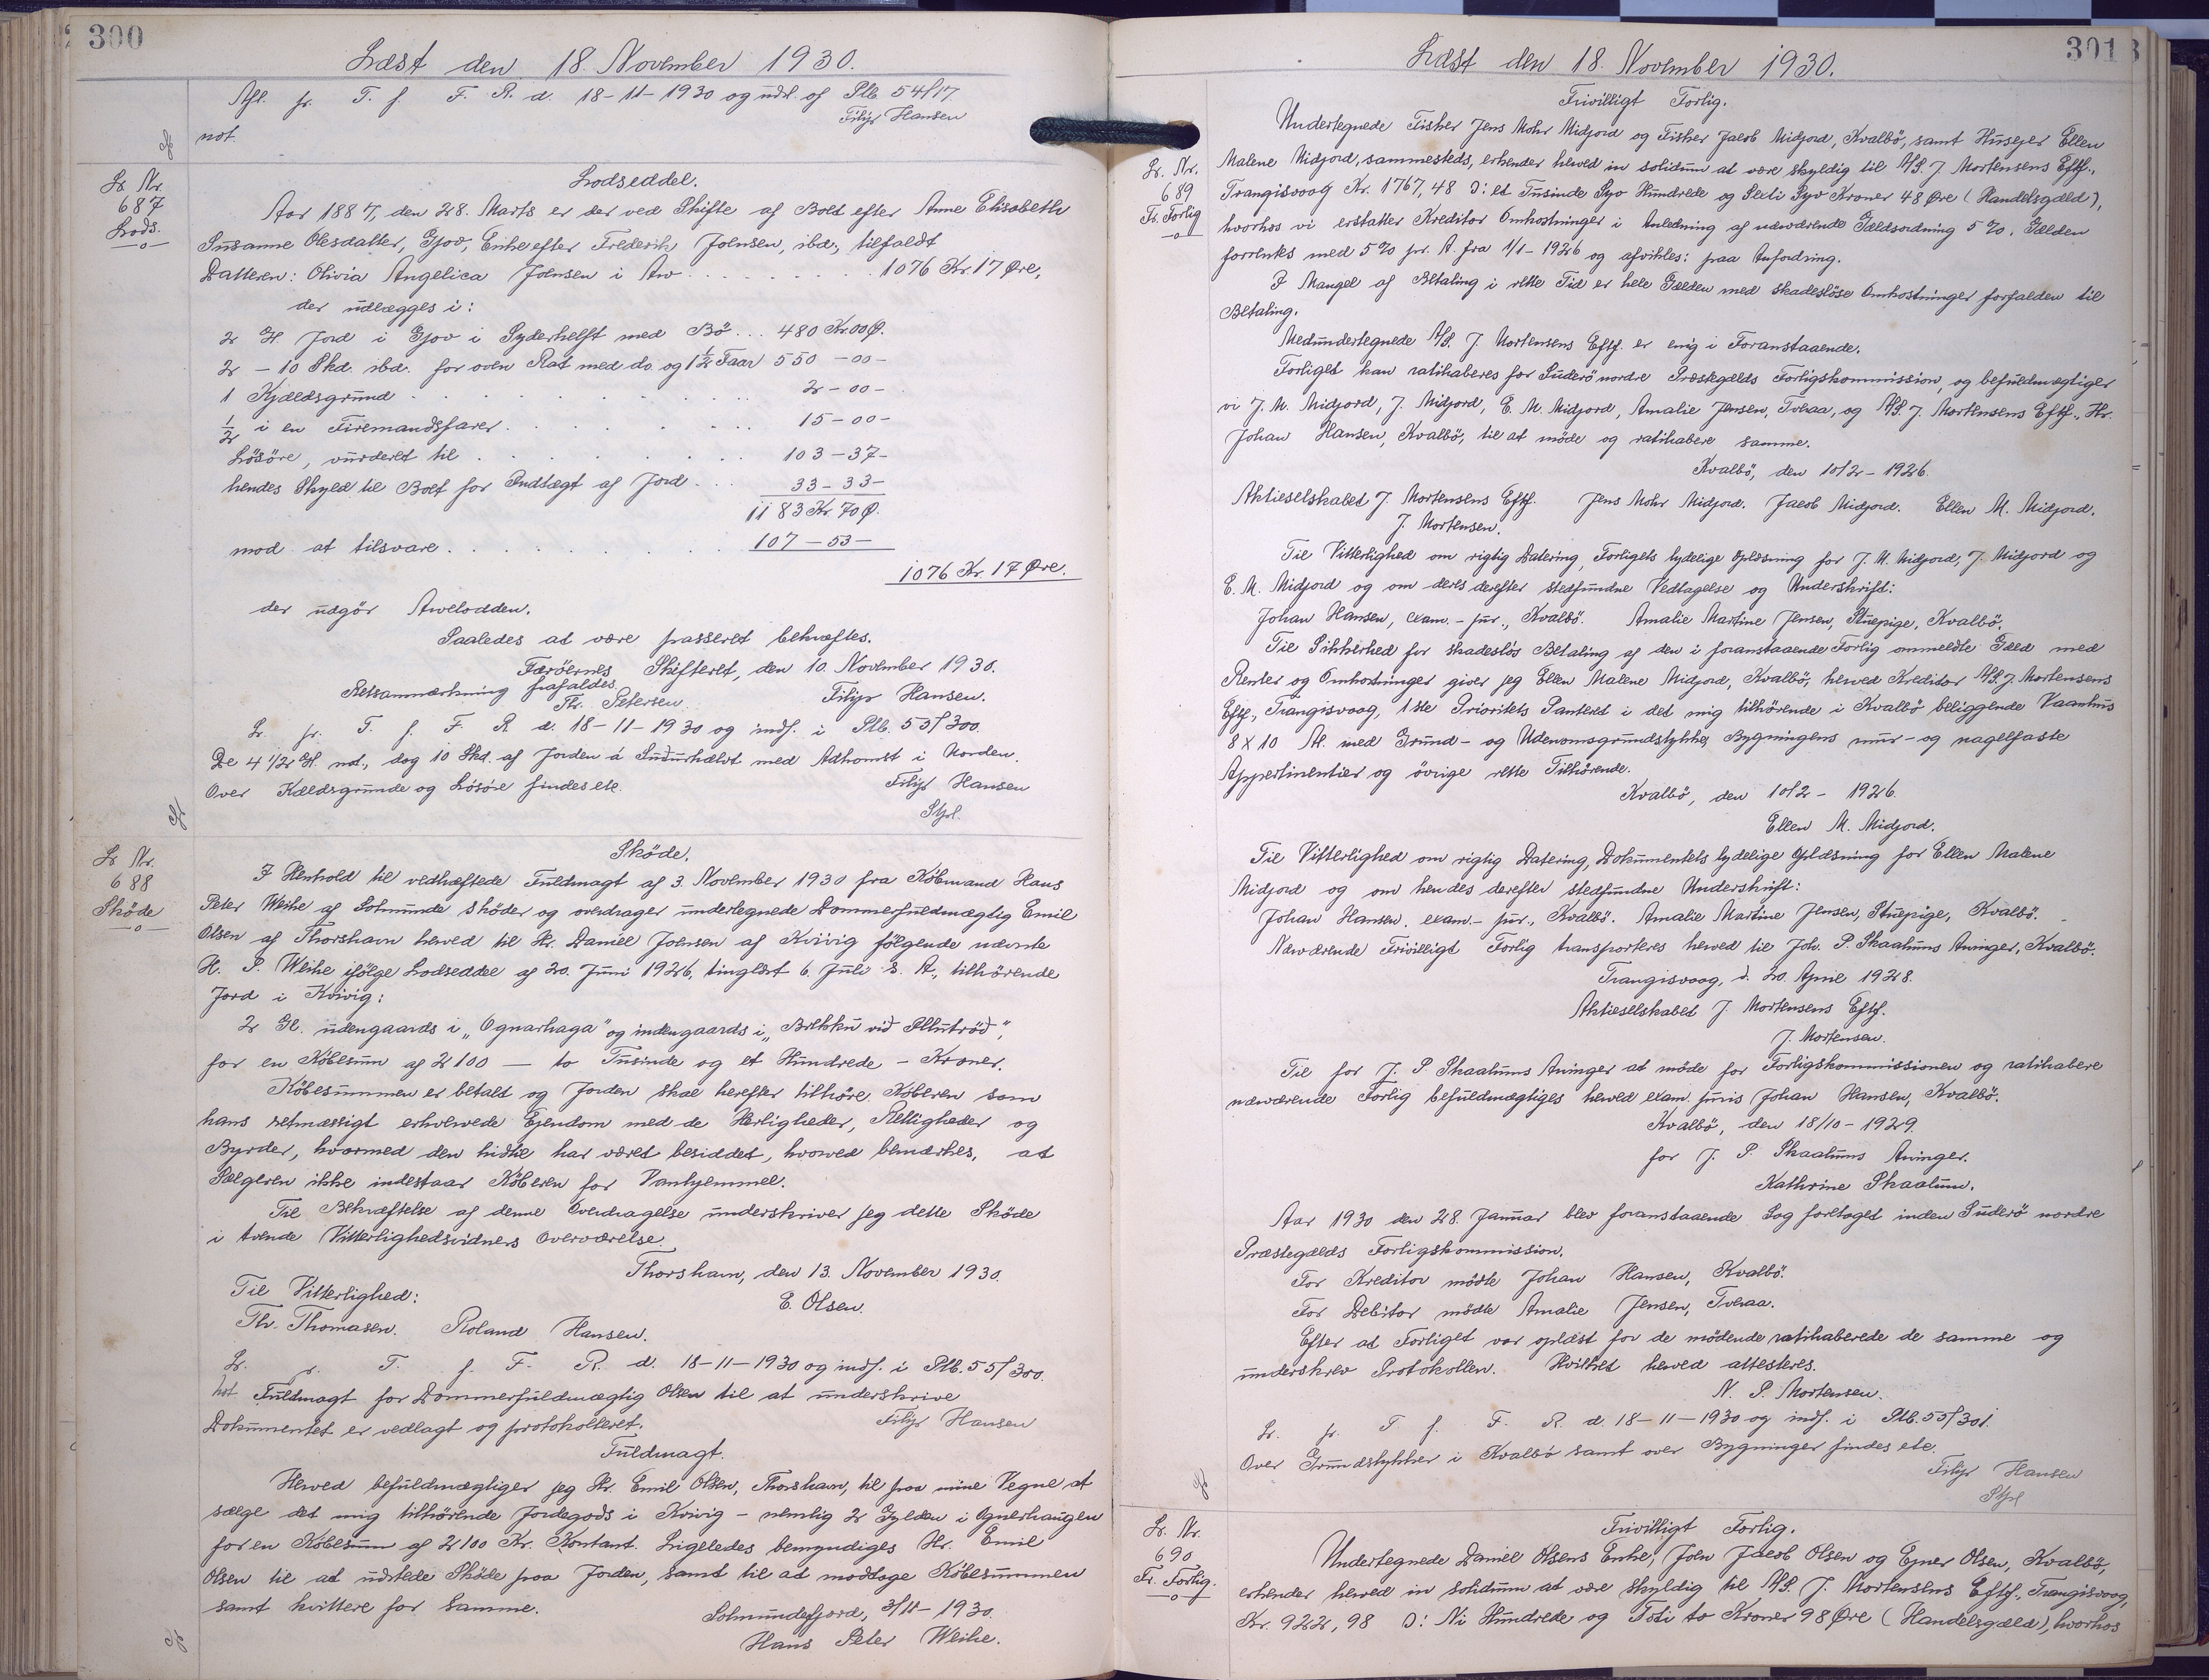 300
Læst den 18. November 1930.
Afl. pr. T. f. F. R. d. 18-11-1930 og udsl. af Ptb. 54/17.
Filip Hansen
not.
Lr. Nr.
687
Lods.
Lodseddel.
Aar 1887, den 28. Marts er der ved Skifte af Boet efter Anne Elisabeth
Susanne Olesdatter, Gjov, Enke efter Frederik Joensen, ibd., tilfaldt
Datteren: Olivia Angelica Joensen i Arv . . . . . . . . . 1076 Kr. 17 Øre,
der udlægges i:
2 G. Jord i Gjov i Syderhelft med Bö ... 480 Kr. 00 Ø.
2 - 10 Skd. ibd. for oven Rat med do. og 1 1/2 Faar 550 - 00 -
1 Kjældsgrund . . . . . . . . 2 - 00 -
1/2 i en Firemandsfarer . . . . . . 15 - 00 -
Lösöre, vurderet til . . . . . . . 103 - 37 -
hendes Skyld til Boet for Indtægt af Jord . . . 33 - 33 -
1183 Kr. 70 Ø.
mod at tilsvare . . . . . . . . 107 - 53 -
1076 Kr. 17 Øre.
der udgör Arvelodden.
Saaledes at være passeret bekræftes.
Færöernes Skifteret, den 10. November 1930.
Retsanmærkning frafaldes.
Th. Petersen. Filip Hansen.
Lr. pr. T. f. F. R. d. 18-11-1930 og indf. i Ptb. 55/300.
De 4 1/2 G. nd., dog 10 Skd. af Jorden á Suðurhælvt med Adkomst i Norden.
Over Kældsgrunde og Lösöre findes ete.
Filip Hansen
Stfl.
Lr. Nr.
688
Sköde
Sköde.
I Henhold til vedhæftede Fuldmagt af 3. November 1930 fra Købmand Hans
Peter Weihe af Solmunde sköder og overdrager undertegnede Dommerfuldmægtig Emil
Olsen af Thorshavn herved til Hr. Daniel Joensen af Kvivig fölgende nævnte
H. P. Weihe ifölge Lodseddel af 20. Juni 1926, tinglæst 6. Juli s. A., tilhörende
Jord i Kvivig:
2 Gl. udengaards i „Ognarhaga" og indengaards i „Brekku við Plluttrød",
for en Købesum af 2100 — to Tusinde og et Hundrede - Kroner.
Købesummen er betalt og Jorden skal herefter tilhöre Køberen som
hans retmæssigt erhvervede Ejendom med de Herligheder, Rettigheder og
Byrder, hvormed den hidtil har været besiddet, hvorved bemærkes, at
Sælgeren ikke indestaar Køberen for Vanhjemmel.
Til Bekræftelse af denne Overdragelse underskriver jeg dette Sköde
i tvende Vitterlighedsvidners Overværelse.
Thorshavn, den 13. November 1930.
Til Vitterlighed: E. Olsen.
Th. Thomasen. Roland Hansen.
Lr. pr. T. f. F. R. d. 18-11-1930 og indf. i Ptb. 55/300.
not Fuldmagt for Dommerfuldmægtig Olsen til at underskrive
Dokumentet er vedlagt og protokolleret. Filip Hansen
Fuldmagt.
Herved befuldmægtiger jeg Hr. Emil Olsen, Thorshavn, til paa mine Vegne at
sælge det mig tilhörende Jordegods i Kvivig - nemlig 2 Gylden i Ognerhaugen
for en Købesum af 2100 Kr. Kontant. Ligeledes bemyndiges Hr. Emil
Olsen til at udstede Sköde paa Jorden, samt til at modtage Købesummen
samt kvittere for samme.
Solmundefjord, 3/11-1930.
Hans Peter Weihe.
301
Læst den 18. November 1930.
Lr. Nr.
689
Fr. Forlig
Frivilligt Forlig.
Undertegnede Fisker Jens Mohr Midjord og Fisker Jacob Midjord, Kvalbö, samt Husejer Ellen
Malene Midjord, sammesteds, erkender herved in solidum at være skyldig til A/S. J. Mortensens Eftf.,
Trangisvaag Kr. 1767,48 ɔ: et Tusinde Syv Hundrede og Seksti Syv Kroner 48 Øre (Handelsgæld),
hvorhos vi erstatter Kreditor Omkostninger i Anledning af nærværende Gældsordning 5 %. Gælden
forrentes med 5 % pr. A. fra 1/1-1926 og afvikles: paa Anfordring.
I Mangel af Betaling i rette Tid er hele Gælden med skadeslöse Omkostninger forfalden til
Betaling.
Medundertegnede A/S. J. Mortensens Eftf. er enig i Foranstaaende.
Forliget kan ratihaberes for Suderö nordre Præstegælds Forligskommission, og befuldmægtiger
vi J. M. Midjord, J. Midjord, E. M. Midjord, Amalie Jensen, Tveraa, og A/S. J. Mortensens Eftf., Hr.
Johan Hansen, Kvalbö, til at möde og ratihabere samme.
Kvalbö, den 10/2-1926.
Aktieselskabet J. Mortensens Eftf. Jens Mohr Midjord. Jacob Midjord. Ellen M. Midjord.
J. Mortensen.
Til Vitterlighed om rigtig Datering, Forligets tydelige Oplæsning for J. M. Midjord, J. Midjord og
E. M. Midjord og om deres derefter stedfundne Vedtagelse og Underskrift:
Johan Hansen, exam. - jur., Kvalbö. Amalie Martine Jensen, Stuepige, Kvalbö.
Til Sikkerhed for skadeslös Betaling af den i foranstaaende Forlig ommeldte Gæld med
Renter og Omkostninger giver jeg Ellen Malene Midjord, Kvalbö, herved Kreditor A/S. J. Mortensens
Eftf., Trangisvaag, 1ste Prioritets Panteret i det mig tilhörende i Kvalbö beliggende Vaanhus
8 x 10 Al. med Grund- og Udenomsgrundstykke, Bygningens mur- og nagelfaste
Appertinentier og övrige rette Tilhörende.
Kvalbö, den 10/2 - 1926.
Ellen M. Midjord.
Til Vitterlighed om rigtig Datering, Dokumentets tydelige Oplæsning for Ellen Malene
Midjord og om hendes derefter stedfundne Underskrift:
Johan Hansen, exam. - jur., Kvalbö. Amalie Martine Jensen, Stuepige, Kvalbö.
Nærværende Frivilligt Forlig transporteres herved til Joh. P. Skaalums Arvinger, Kvalbö.
Trangisvaag, d. 20. April 1928.
Aktieselskabet J. Mortensens Eftf.
J. Mortensen.
Til for J. P. Skaalums Arvinger at möde for Forligskommissionen og ratihabere
nærværende Forlig befuldmægtiges herved exam. juris Johan Hansen, Kvalbö.
Kvalbö, den 18/10 - 1929.
for J. P. Skaalums Arvinger.
Kathrine Skaalum.
Aar 1930 den 28. Januar blev foranstaaende Sag foretaget inden Suderö nordre
Præstegælds Forligskommission.
For Kreditor mödte Johan Hansen, Kvalbö.
For Debitor mödte Amalie Jensen, Tveraa.
Efter at Forliget var oplæst for de mödende ratihaberede de samme og
underskrev Protokollen. Hvilket herved attesteres.
N. P. Mortensen.
Lr. pr. T f. F. R. d. 18-11-1930 og indf. i Ptb. 55/301.
Over Grundstykker i Kvalbö samt over Bygninger findes ete.
Filip Hansen
Stfl
Lr. Nr.
690
Fr. Forlig.
Frivilligt Forlig.
Undertegnede Daniel Olsens Enke, Joen Jacob Olsen og Ejner Olsen, Kvalbö,
erkender herved in solidum at være skyldig til A/S. J. Mortensens Eftf., Trangisvaag,
Kr. 922,98 ɔ: Ni Hundrede og Toti to Kroner 98 Øre (Handelsgæld), hvorhos